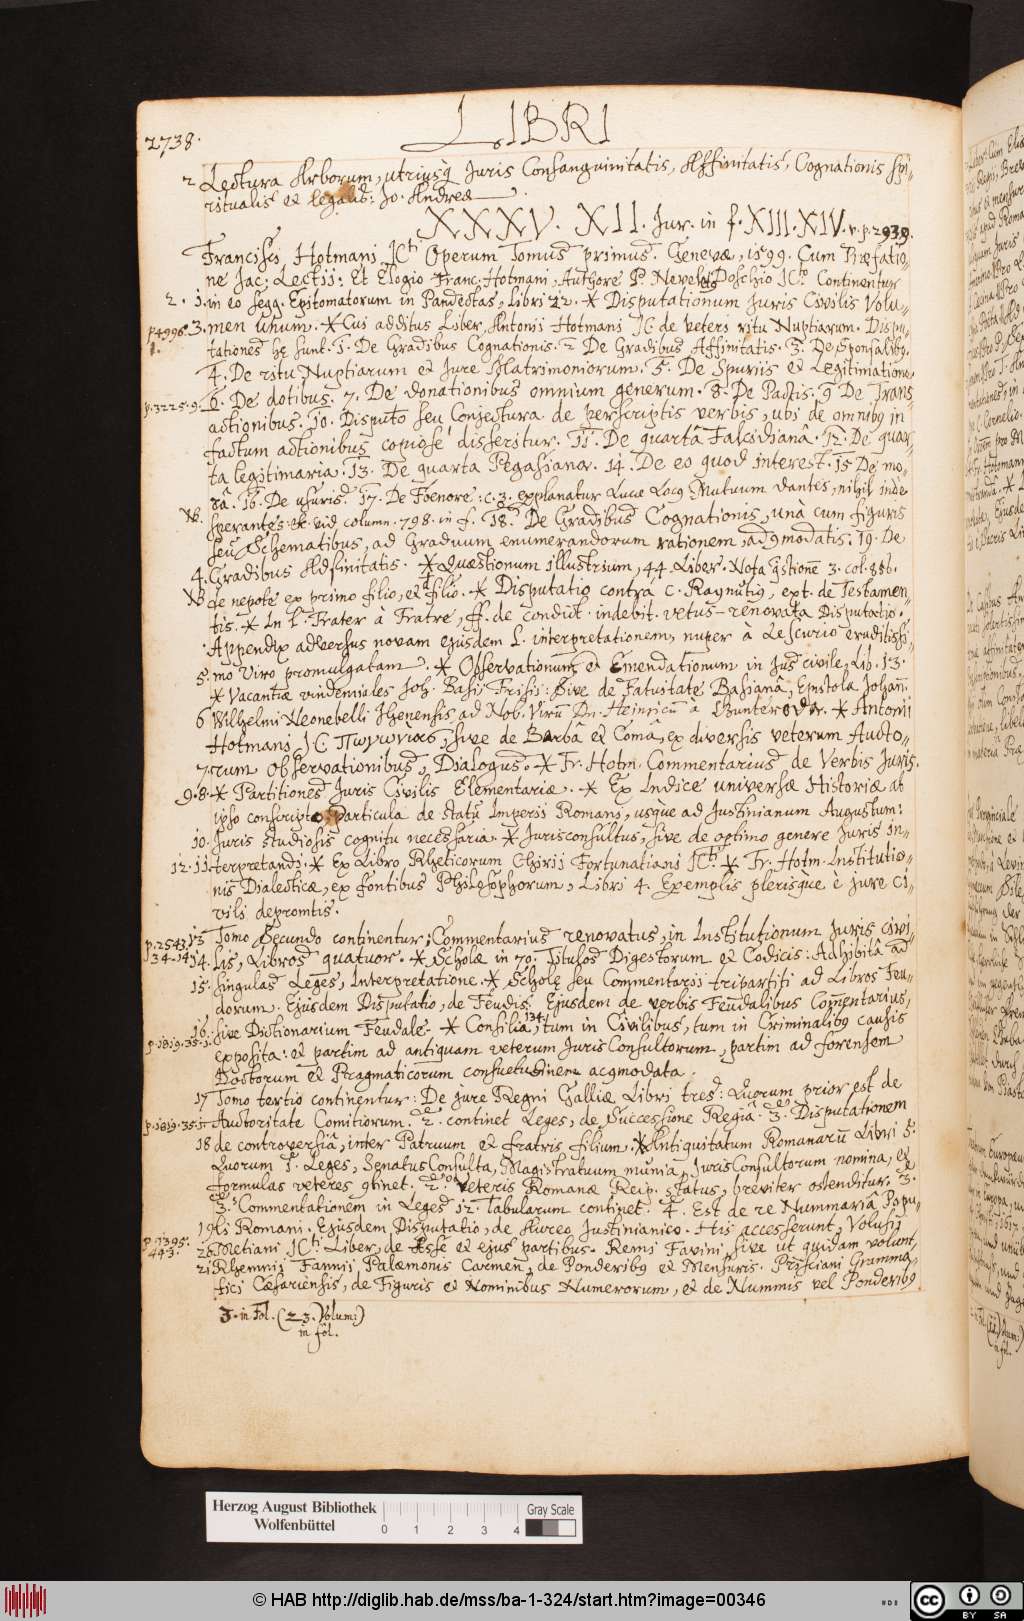 2738.
LIBRI
2 Lectura Arborum, utriusq Juris Consanguinitatis, Affinitatis, Cognationis spi-
ritualis et legalis: Jo. Andreæ
XXXV. XII. Jur. in f. XIII. XIV. v. p. 2939.
Francisci Hotmani JCti Operum Tomus primus. Genevæ, 1599. Cum Præfatio-
ne Jac. Lectii: Et Elogio Franc. Hotmani, Authore P. Neveleto Doschio JCto Continentur
2. 1. in eo segg. Epitomatorum in Pandectas, Libri 22. * Disputationum Juris Civilis Volu-
p. 4996. 3. men unum. * Cui additus Liber, Antonii Hotmani JC de veteri ritu Nuptiarum. Dispu-
1. tationes hę sunt. 1. De Gradibus Cognationis. 2 De Gradibus Affinitatis. 3. De Sponsalibq.
4. De ritu Nuptiarum et Jure Matrimoniorum. 5. De Spuriis et Legitimatione.
p. 3225. 9. 6. De dotibus. 7. De donationibus omnium generum. 8. De Pactis. 9 De Trans-
actionibus. 10. Disputo seu Conjectura de perscriptis verbis, ubi de omnibq in
factum actionibus copiose disseritur. 11. De quartâ Falcidianâ. 12. De quar-
ta legitimaria. 13. De quarta Pegasiana. 14. De eo quod interest. 15 De mo-
râ. 16. De usuris. 17. De Foenore: c. 3. explanatur Lucæ Locq Mutuum dantes, nihil inde
NB. sperantes &c. vid column. 798. in f. 18. De Gradibus Cognationis, una cum figuris
seu Schematibus, ad Graduum enumerandorum rationem, adcomodatis. 19. De
4. Gradibus Adfinitatis. * Quæstionum illustrium, 44. Liber. Nota qstionē 3. col. 856.
NB de nepote ex primo filio, et filio. * Disputatio contra C. Raynutiq, ext. de Testamen-
tis. * In L. Frater à Fratre, ff. de condict. indebit. vetus-renovata Disputatio.
Appendix adversus novam ejusdem L. interpretationem, nuper à Lescurio eruditissi-
5. mo Viro promulgatam. * Observationum et Emendationum in Jus civile, Lib. 13.
* Vacantiæ vindemiales Joh. Basii Frisii: Sive de Fatuitate Basianâ, Epistola Johan.
6 Wilhelmi Neonebelli Jhenensis, ad Nob. Virū Dn. Heinricū à Gunterodt. * Antonii
Hotmani JC. Πωγωνίας, sive de Barbâ et Comâ, ex diversis veterum Aucto-
7. rum observationibus, Dialogus. * Fr. Hotm. Commentarius de Verbis Juris.
9. 8. * Partitiones Juris Civilis Elementariæ. * Ex Indice universæ Historiæ ab
ipso conscriptæ, particula de statu Imperii Romani, usque ad Justinianum Augustum:
10. Juris studiosis cognitu necessaria * Jurisconsultus, sive de optimo genere Juris in-
12. 11. terpretandi. * Ex Libro Rhetoricorum Chirii Fortunatiani JCti * Fr. Hotm. Institutio-
nis Dialecticæ, ex fontibus Philosophorum, Libri 4. Exemplis plerisque è jure ci-
vili depromtis.
p. 2543. 13 Tomo Secundo continentur; Commentarius renovatus, in Institutionum Juris civi-
34. 14. 14. lis, Libros quatuor. * Scholæ in 70. Titulos Digestorum et Codicis: Adhibitâ ad
15. singulas Leges, Interpretatione. * Scholę seu Commentarii tripartiti ad Libros Feu-
dorum. Ejusdem Disputatio, de Feudis. Ejusdem de verbis Feudalibus Comentarius,
16. sive Dictionarium Feudale. * Consilia 134., tum in Civilibus, tum in Criminalibq causis
p. 1819. 35. 1. exposita: et partim ad antiquam veterum JurisConsultorum, partim ad forensem
Doctorum et Pragmaticorum consuetudinem accomodata.
17 Tomo tertio continentur: De jure Regni Galliæ Libri tres: Quorum prior est de
p. 1819. 35. 1. Auctoritate Comitiorum. 2. continet Leges, de Successione Regiâ. 3. Disputationem
18 de controversiâ, inter Patruum et fratris filium. * Antiquitatum Romanarū Libri 5.
Quorum 1. Leges, SenatusConsulta, Magistratuum munia, JurisConsultorum nomina, et
formulas veteres continet. 2. Veteris Romanæ Reip. status, breviter ostenditur. 3.
3. Commentationem in Leges 12. Tabularum continet. 4. Est de re Nummariâ Popu-
19 li Romani. Ejusdem Disputatio, de Aureo Justinianico. His accesserunt, Volusii
p. 3395. 20. Metiani JCti Liber, de Asse et ejus partibus. Remi Favini, sive ut quidam volunt,
443. 21 Rhemnii Fannii Palæmonis Carmen, de Ponderibq et Mensuris. Prisciani Gramma-
tici Cæsariensis, de Figuris et Nominibus Numerorum, et de Nummis vel Ponderibq
3. in Fol. (23. Volum:)
in fol.
Herzog August Bibliothek
Wolfenbüttel
0 1 2 3 4
Gray Scale
© HAB http://diglib.hab.de/mss/ba-1-324/start.htm?image=00346
cc BY SA